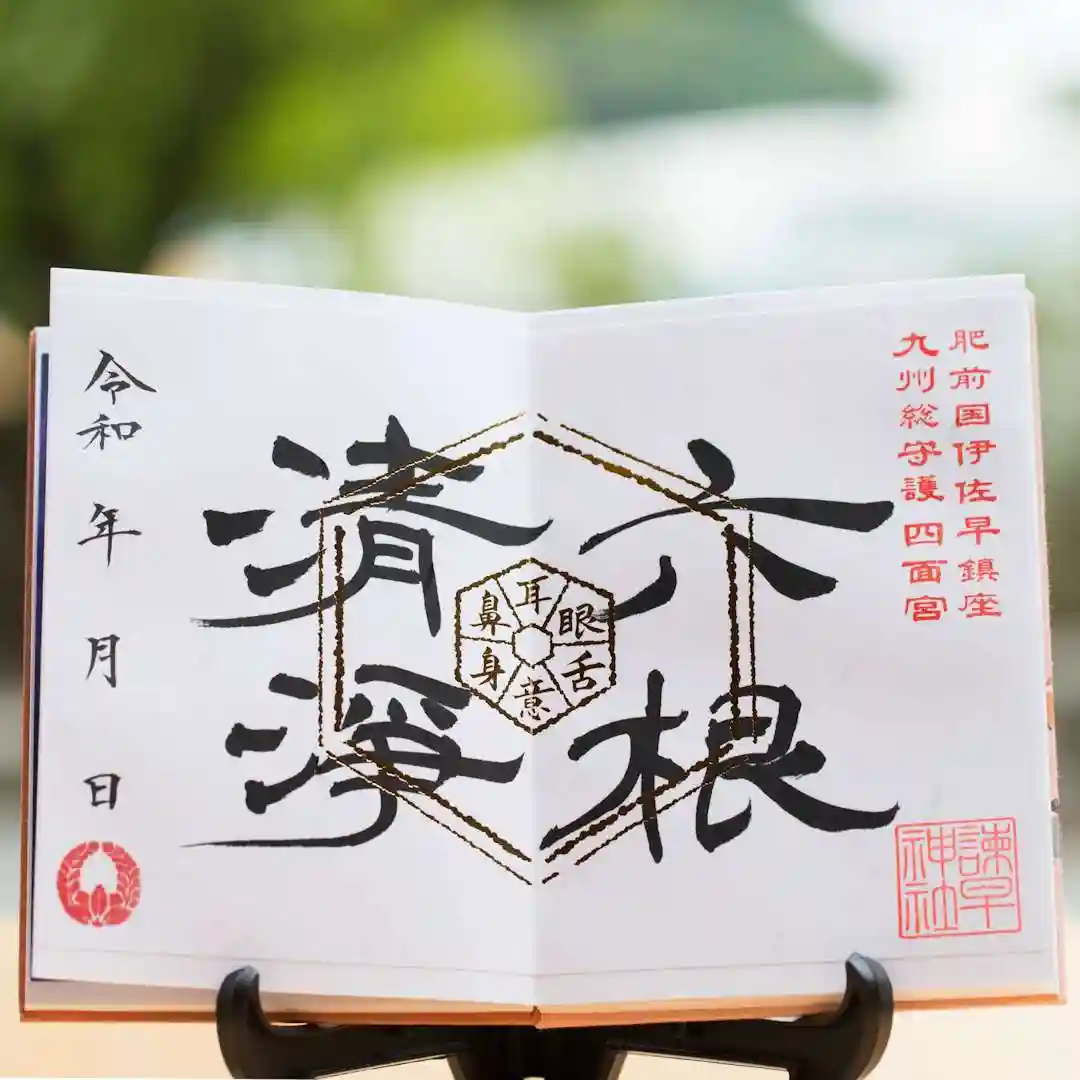 肥前国伊佐早鎮座
九州総守護 四面宮
六根
清浄
眼
耳
鼻
舌
身
意
諫早
神社
令和 年 月 日